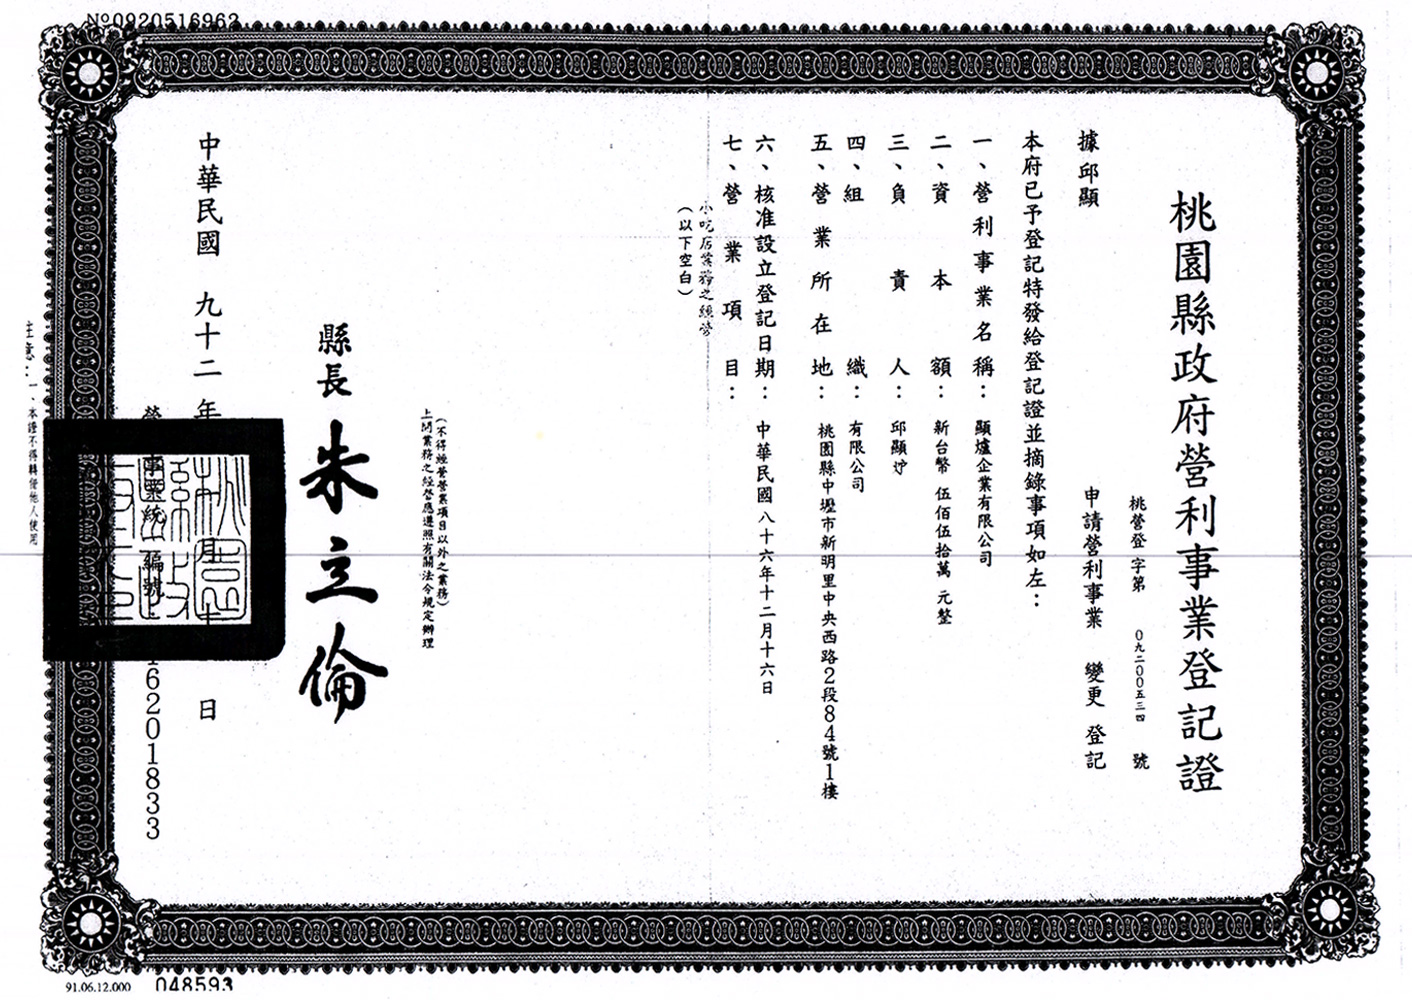 Nº0920516962
桃園縣政府營利事業登記證
桃營登字第 0九二00五三四 號
據邱顯 申請營利事業 變更 登記
本府已予登記特發給登記證並摘錄事項如左：
一、營利事業名稱：顯爐企業有限公司
二、資本額：新台幣 伍佰伍拾萬 元整
三、負責人：邱顯
四、組織：有限公司
五、營業所在地：桃園縣中壢市新明里中央西路2段84號1樓
六、核准設立登記日期：中華民國八十六年十二月十六日
七、營業項目：
小吃店業務之經營
（以下空白）
（不得經營登業項目以外之業務）
上開業務之經營應遵照有關法令規定辦理
縣長 朱立倫
中華民國 九十二 年 月 日
事業統一編號：16201833
注意：一、本證不得轉借他人使用
91.06.12.000 048593